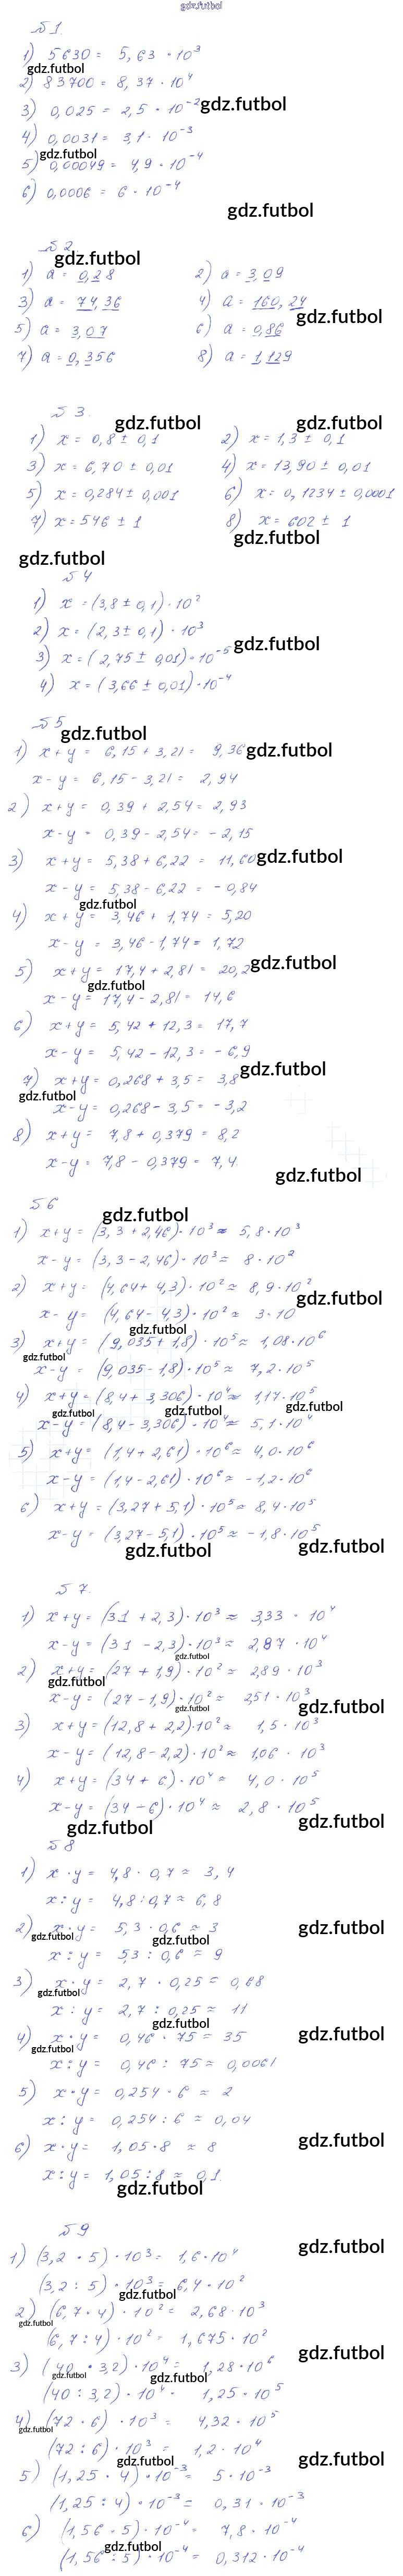 gdz.futbol
№1
1) 5630 = 5,63 · 10³
gdz.futbol
2) 83700 = 8,37 · 10⁴
3) 0,025 = 2,5 · 10⁻² gdz.futbol
4) 0,0031 = 3,1 · 10⁻³
gdz.futbol
5) 0,00049 = 4,9 · 10⁻⁴
6) 0,0006 = 6 · 10⁻⁴
gdz.futbol
№2
gdz.futbol
1) a = 0,28 2) a = 3,09
3) a = 74,36 4) a = 160,24
gdz.futbol
5) a = 3,07 6) a = 0,86
7) a = 0,356 8) a = 1,129
№3.
gdz.futbol gdz.futbol
1) x = 0,8 ± 0,1 2) x = 1,3 ± 0,1
3) x = 6,70 ± 0,01 4) x = 13,90 ± 0,01
5) x = 0,284 ± 0,001 6) x = 0,1234 ± 0,0001
7) x = 546 ± 1 8) x = 602 ± 1
gdz.futbol
gdz.futbol
№4
1) x = (3,8 ± 0,1) · 10²
2) x = (2,3 ± 0,1) · 10³
gdz.futbol
3) x = (2,75 ± 0,01) · 10⁻⁵
4) x = (3,66 ± 0,01) · 10⁻⁴
№5
gdz.futbol
1) x + y = 6,15 + 3,21 = 9,36 gdz.futbol
x − y = 6,15 − 3,21 = 2,94
2) x + y = 0,39 + 2,54 = 2,93
x − y = 0,39 − 2,54 = −2,15
3) x + y = 5,38 + 6,22 = 11,60 gdz.futbol
x − y = 5,38 − 6,22 = −0,84
gdz.futbol
4) x + y = 3,46 + 1,74 = 5,20
x − y = 3,46 − 1,74 = 1,72
5) x + y = 17,4 + 2,81 = 20,2 gdz.futbol
gdz.futbol
x − y = 17,4 − 2,81 = 14,6
6) x + y = 5,42 + 12,3 = 17,7
x − y = 5,42 − 12,3 = −6,9
7) x + y = 0,268 + 3,5 = 3,8 gdz.futbol
gdz.futbol
x − y = 0,268 − 3,5 = −3,2
8) x + y = 7,8 + 0,379 = 8,2
x − y = 7,8 − 0,379 = 7,4
gdz.futbol
№6
gdz.futbol
1) x + y = (3,3 + 2,46) · 10³ ≈ 5,8 · 10³
x − y = (3,3 − 2,46) · 10³ ≈ 8 · 10²
2) x + y = (4,64 + 4,3) · 10² ≈ 8,9 · 10²
gdz.futbol
x − y = (4,64 − 4,3) · 10² ≈ 3 · 10
gdz.futbol
3) x + y = (9,035 + 1,8) · 10⁵ ≈ 1,08 · 10⁶
gdz.futbol
x − y = (9,035 − 1,8) · 10⁵ ≈ 7,2 · 10⁵
4) x + y = (8,4 + 3,306) · 10⁴ ≈ 1,17 · 10⁵
gdz.futbol gdz.futbol gdz.futbol
x − y = (8,4 − 3,306) · 10⁴ ≈ 5,1 · 10⁴
5) x + y = (1,4 + 2,61) · 10⁶ ≈ 4,0 · 10⁶
x − y = (1,4 − 2,61) · 10⁶ ≈ −1,2 · 10⁶
6) x + y = (3,27 + 5,1) · 10⁵ ≈ 8,4 · 10⁵
x − y = (3,27 − 5,1) · 10⁵ ≈ −1,8 · 10⁵
gdz.futbol gdz.futbol
№7.
1) x + y = (31 + 2,3) · 10³ ≈ 3,33 · 10⁴
x − y = (31 − 2,3) · 10³ ≈ 2,87 · 10⁴
gdz.futbol
2) x + y = (27 + 1,9) · 10² ≈ 2,89 · 10³
gdz.futbol
x − y = (27 − 1,9) · 10² ≈ 2,51 · 10³
gdz.futbol gdz.futbol
3) x + y = (12,8 + 2,2) · 10² ≈ 1,5 · 10³
x − y = (12,8 − 2,2) · 10² ≈ 1,06 · 10³
4) x + y = (34 + 6) · 10⁴ ≈ 4,0 · 10⁵
x − y = (34 − 6) · 10⁴ ≈ 2,8 · 10⁵
gdz.futbol gdz.futbol
№8
1) x · y = 4,8 · 0,7 ≈ 3,4
x : y = 4,8 : 0,7 ≈ 6,8
2) x · y = 5,3 · 0,6 ≈ 3 gdz.futbol
gdz.futbol gdz.futbol
x : y = 5,3 : 0,6 ≈ 9
3) x · y = 2,7 · 0,25 = 0,68
gdz.futbol
x : y = 2,7 : 0,25 ≈ 11
gdz.futbol
4) x · y = 0,46 · 75 = 35 gdz.futbol
gdz.futbol
x : y = 0,46 : 75 ≈ 0,0061
5) x · y = 0,254 · 6 ≈ 2
x : y = 0,254 : 6 ≈ 0,04
6) x · y = 1,05 · 8 ≈ 8 gdz.futbol
x : y = 1,05 : 8 ≈ 0,1
gdz.futbol
№9
gdz.futbol
1) (3,2 · 5) · 10³ = 1,6 · 10⁴
(3,2 : 5) · 10³ = 6,4 · 10²
gdz.futbol
2) (6,7 · 4) · 10² = 2,68 · 10³
gdz.futbol
(6,7 : 4) · 10² = 1,675 · 10²
gdz.futbol
3) (40 · 3,2) · 10⁴ = 1,28 · 10⁶
gdz.futbol gdz.futbol
(40 : 3,2) · 10⁴ = 1,25 · 10⁵
4) (72 · 6) · 10³ = 4,32 · 10⁵
gdz.futbol
(72 : 6) · 10³ = 1,2 · 10⁴
gdz.futbol gdz.futbol
5) (1,25 · 4) · 10⁻³ = 5 · 10⁻³
(1,25 : 4) · 10⁻³ = 0,31 · 10⁻³
6) (1,56 · 5) · 10⁻⁴ = 7,8 · 10⁻⁴
gdz.futbol
(1,56 : 5) · 10⁻⁴ = 0,312 · 10⁻⁴